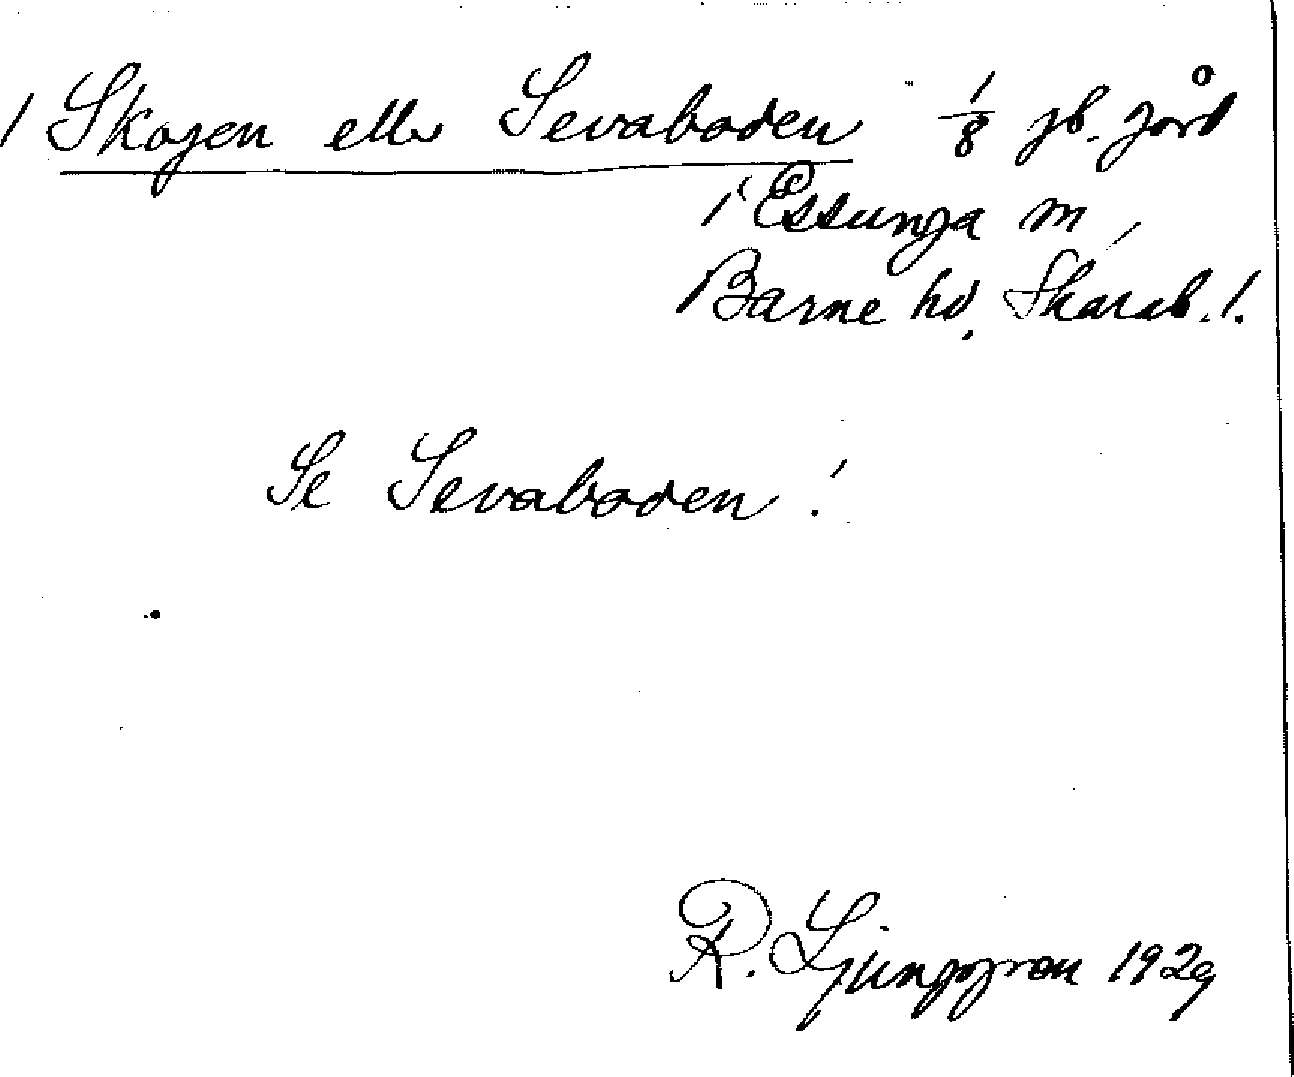 / Skogen eller Sevaboden 1/8 jb. jord
i Essunga sn,
Barne hd, Skarab. l.
Se Sevaboden!
R. Ljunggren 1929